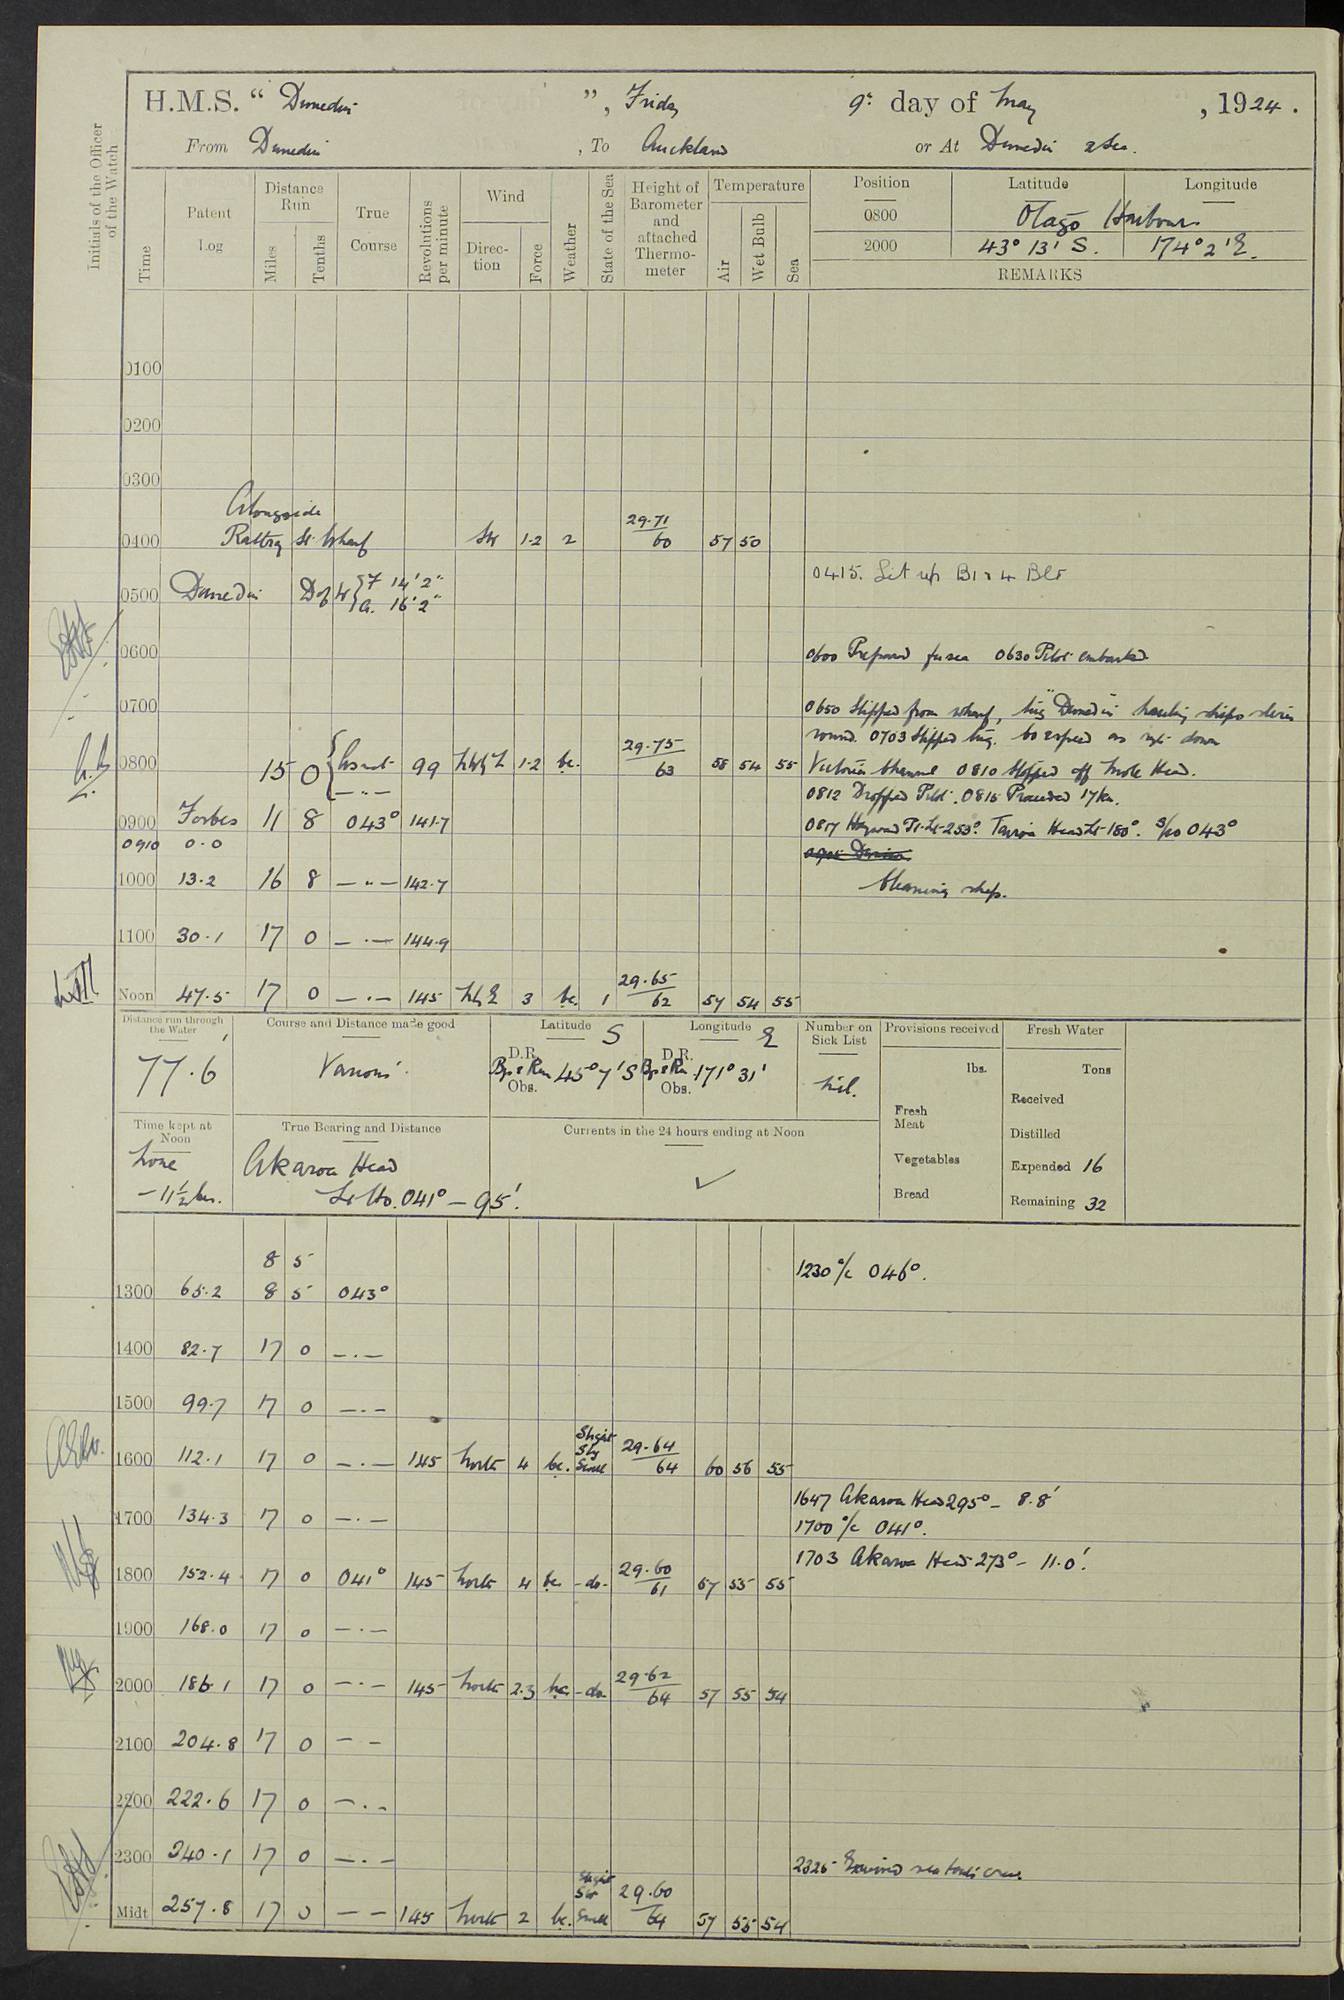 H.M.S. “ Dunedin ”, Friday 9th day of May, 1924.
From Dunedin, To Auckland or At Dunedin & Sea.
Initials of the Officer of the Watch
Time
Patent Log
Distance Run
Miles
Tenths
True Course
Revolutions per minute
Wind
Direction
Force
Weather
State of the Sea
Height of Barometer and attached Thermometer
Temperature
Air
Wet Bulb
Sea
Position Latitude Longitude
0800 Otago Harbour
2000 43° 13' S. 174° 2' E.
REMARKS
0100
0200
0300
Alongside
0400 Rattray St. Wharf 1.2 2 29.71 60 57 50
0415. Lit up B1 & 4 Blr
0500 Dunedin D of W { F 14' 2"
A. 16' 2"
0600
0600 Prepared for sea 0630 Pilot embarked.
0700
0650 Slipped from wharf, tug "Dunedin" hauling ships stern
round. 0703 Slipped tug. Co & speed as req. down
0800 15 0 99 1.2 bc. 29.75 63 58 54 55
Victoria Channel 0810 Stopped off Mole Head.
0812 Dropped Pilot. 0815 Proceeded 17 kn.
0900 Forbes 11 8 043° 141.7
0817 Heyward Pt. Lt. 253°. Taiaroa Head Lt. 180°. S/co 043°
0910 0.0
1000 13.2 16 8 — " — 142.7
Cleaning ship.
1100 30.1 17 0 — . — 144.9
Noon 47.5 17 0 — . — 145 3 bc. 1 29.65 62 57 54 55
Distance run through the Water
77.6'
Course and Distance made good
Various.
Latitude S
D.R.
Bgs & Run 45° 7' S
Obs.
Longitude E
D.R.
Bgs & Rn 171° 31'
Obs.
Number on Sick List
Nil.
Provisions received
lbs.
Fresh Meat
Vegetables
Bread
Fresh Water
Tons
Received
Distilled
Expended 16
Remaining 32
Time kept at Noon
Zone
– 11½ hrs.
True Bearing and Distance
Akaroa Head
Lt. Ho. 041° – 95'.
Currents in the 24 hours ending at Noon
✓
8 5
1230 a/c 046°.
1300 65.2 8 5 043°
1400 82.7 17 0 — . —
1500 99.7 17 0 — . —
1600 112.1 17 0 — . — 145 North 4 bc. Slight Sly Swell 29.64 64 60 56 55
1647 Akaroa Head 295° – 8.8'
1700 134.3 17 0 — . —
1700 a/c 041°.
1703 Akaroa Head 273° – 11.0'.
1800 152.4 17 0 041° 145 North 4 bc -do- 29.60 61 57 55 55
1900 168.0 17 0 — . —
2000 186.1 17 0 — . — 145 North 2.3 bc -do- 29.62 64 57 55 54
2100 204.8 17 0 — —
2200 222.6 17 0 — . —
2300 240.1 17 0 — . —
2325 Exercised sea boats crew.
Midt 257.8 17 0 — — 145 North 2 bc. Slight Swell 29.60 64 57 55 54